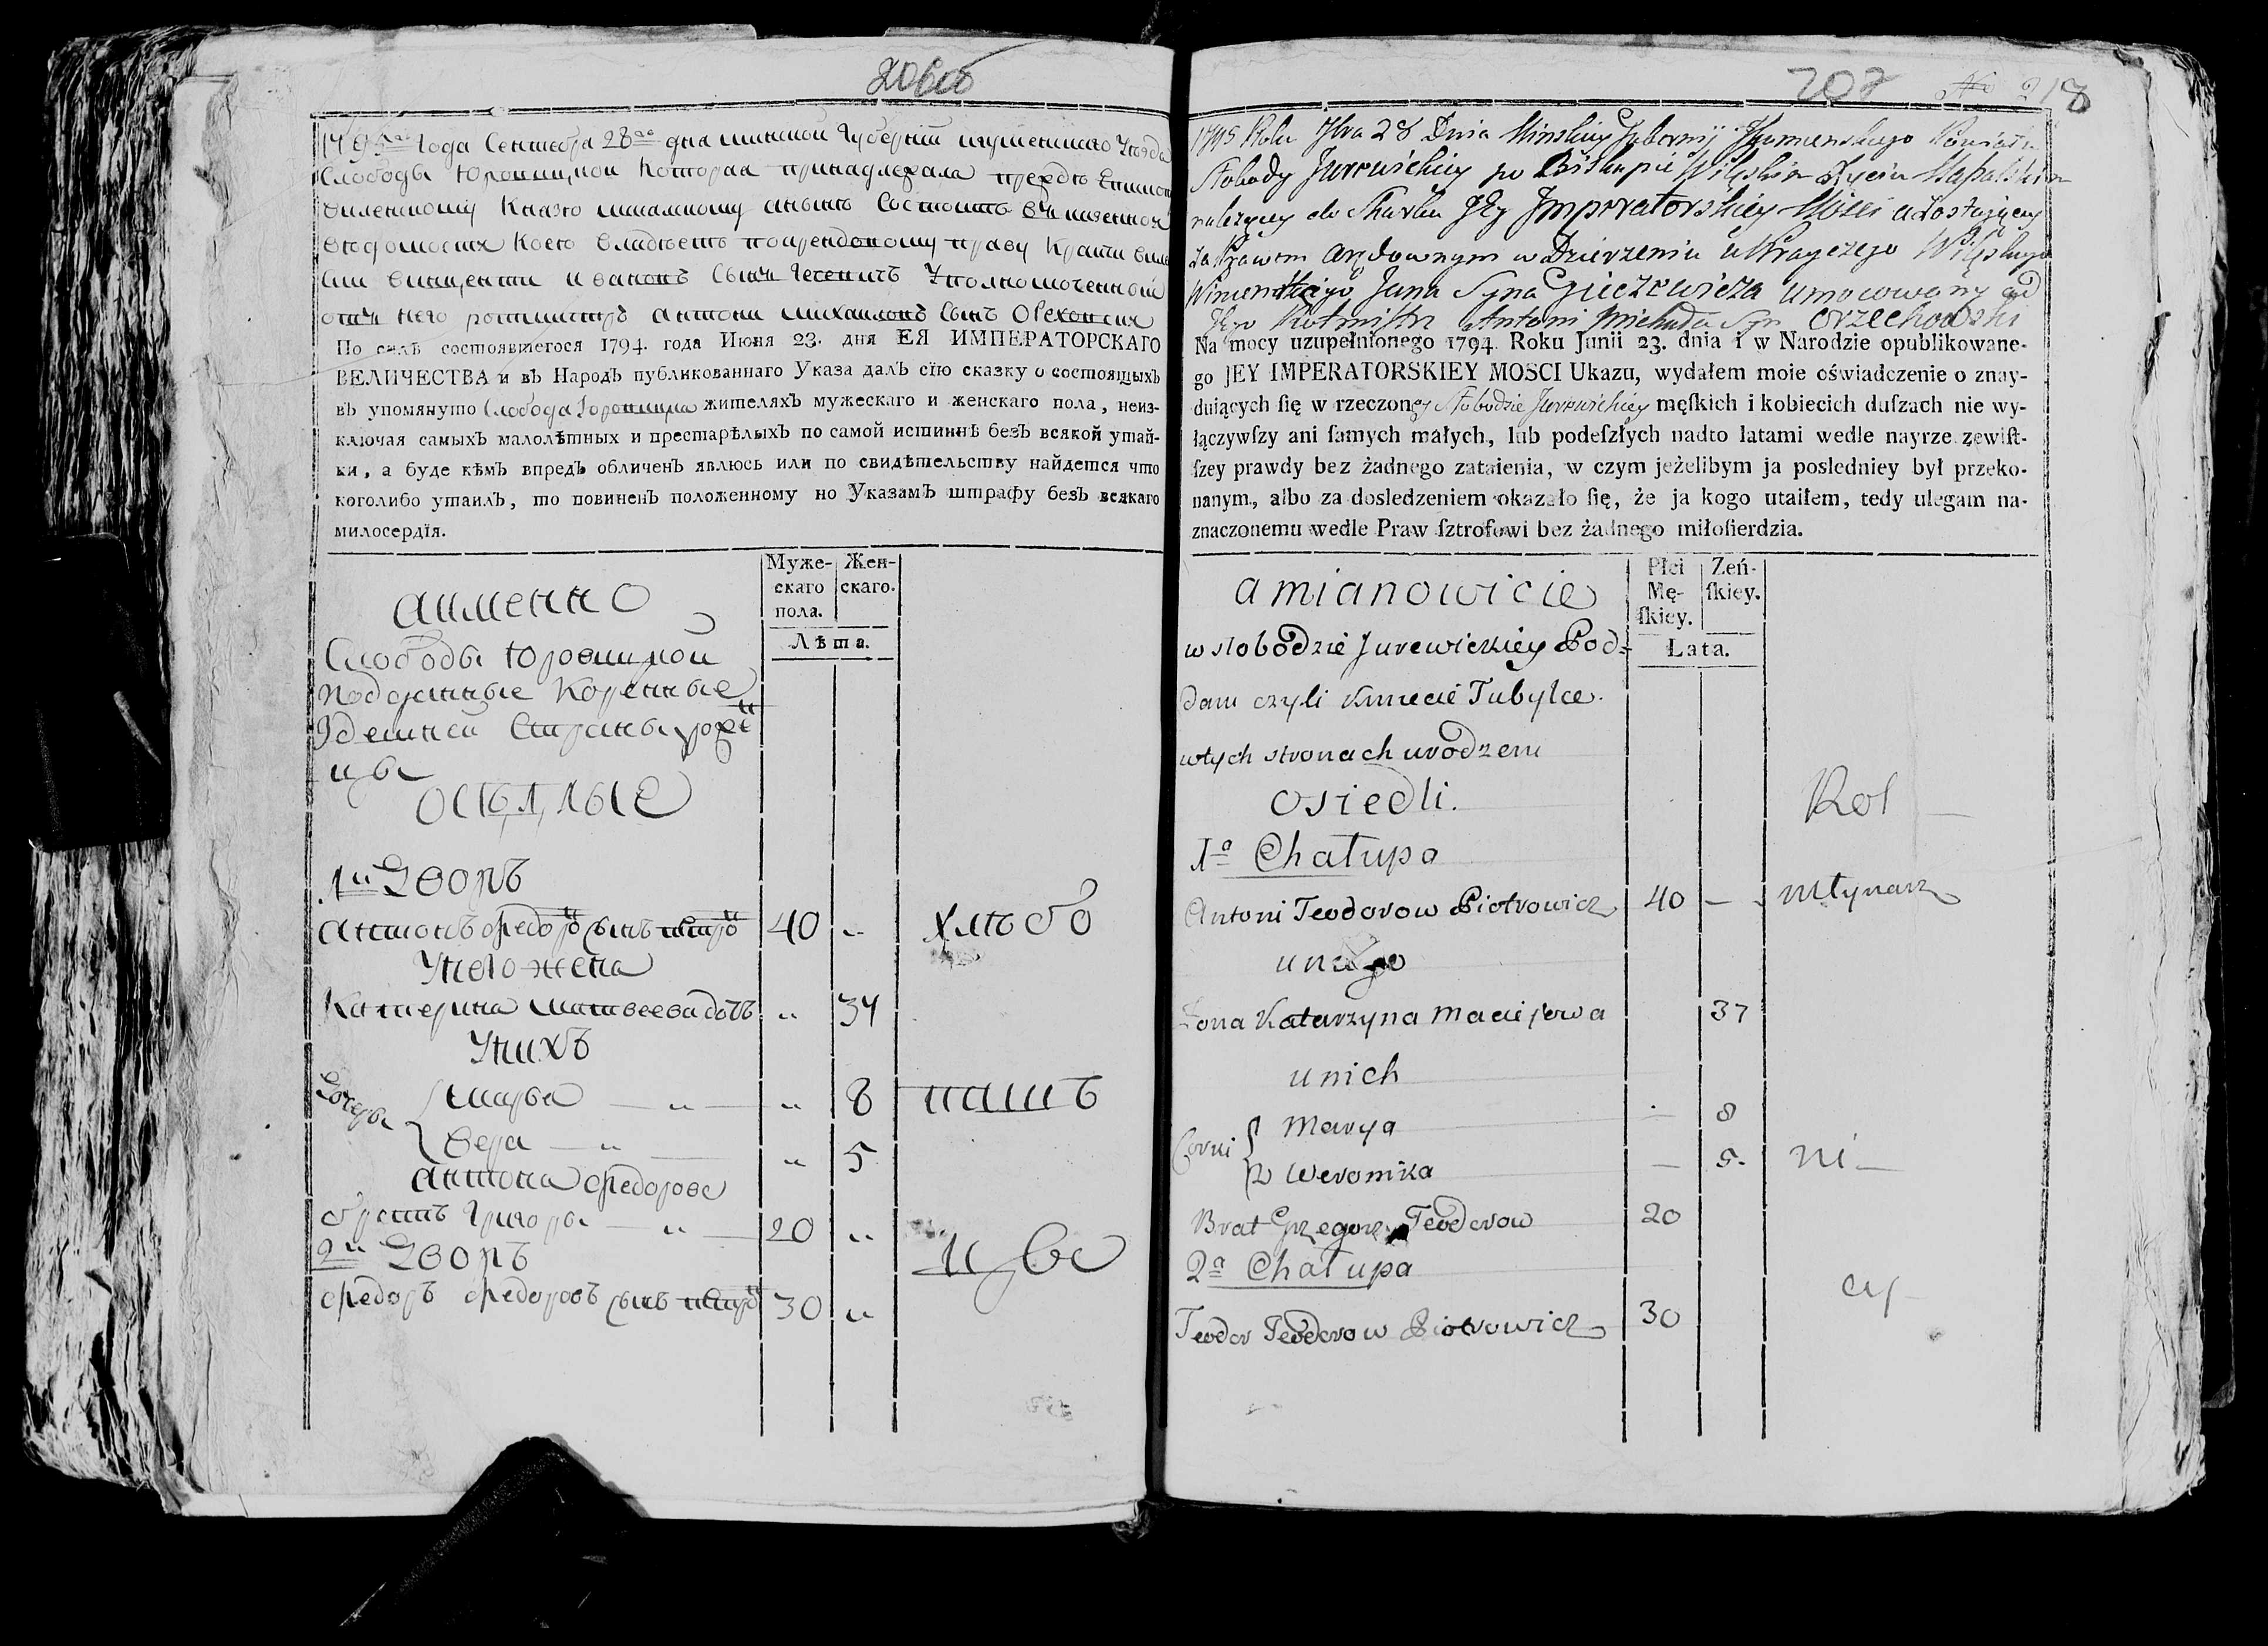 1795 года Сентября 28го дня минской Губернии игуменского Уезда
Слободы Юровицкой Которая принадлежала прежде Епископу
виленскому Князю масалскому а ныне Состоитъ въ казенном
ведомости Коею владеетъ по арендовному праву
ивановъ Сынъ Уполномоченный
отъ него ротмистръ антони михаиловъ Сынъ Орехов
По силѣ состоявшегося 1794. года Июня 23. дня ЕЯ ИМПЕРАТОРСКАГО
ВЕЛИЧЕСТВА и въ Народъ публикованнаго Указа далъ сїю сказку о состоящыхъ
въ упомянуто Слобода Юровицка жителяхъ мужескаго и женскаго пола, неиз-
ключая самыхъ малолѣтных и престарѣлыхъ по самой истиннѣ безъ всякой утай-
ки, а буде кѣмъ впредъ обличенъ явлюсь или по свидѣтельству найдется что
коголибо утаилъ, то повиненъ положенному по Указамъ штрафу безъ всякаго
милосердїя.
Муже-
скаго
пола.
Жен-
скаго.
Лѣта.
а именно
Слободы Юровицкой
подданные Коренные
Здешней Страны уроже
нцы
оселые
1й Дворъ
Антонъ Федоро Сынъ петро 40 „ хлебо
У него жена
Катерина матвеева дочь „ 37
У нихъ
Дочеры
марья — „ — „ 8 паш
Вера — „ — „ 5
Антона Федорова
братъ Григоры — „ — 20 „
2й Дворъ цы
Федоръ Федоровъ Сынъ петро 30 „
207 No 218
1795 Roku 7bra 28 Dnia Minskiey Gubernij Ihumenskiego Powiatu
Słobody Jurewickiey po Biskupie Wileńskim Xięciu Massalskim
należącey do Skarbu JEy Imperatorskiey Mości a zostającey
za Prawem arędownym w Dzierżeniu Wileńskiego
Jana Syna Gieczewicza umocowany od
Jego Rotmistrz Antoni Michała Syn Orzechowski
Na mocy uzupełnionego 1794 Roku Junii 23. dnia i w Narodzie opublikowane-
go JEY IMPERATORSKIEY MOSCI Ukazu, wydałem moie oświadczenie o znay-
duiących ſię w rzeczoney Słobodzie Jurewickiey męſkich i kobiecich duſzach nie wy-
łączywſzy ani ſamych małych, lub podeſzłych nadto latami wedle nayrzezewiſt-
ſzey prawdy bez żadnego zataienia, w czym jeżelibym ja posledniey był przeko-
nanym, albo za dosledzeniem okazało ſię, że ja kogo utaiłem, tedy ulegam na-
znaczonemu wedle Praw ſztrofowi bez żadnego miłoſierdzia.
Płci
Mę-
ſkiey.
Zeń-
ſkiey.
Łata.
a mianowicie
w słobodzie Jurewickiey Pod-
dani czyli Kmiecie Tubylce.
w tych stronach urodzeni
osiedli. Rol —
1a Chałupa
Antoni Teodorow Piotrowicz 40 — Młynarz
u niego
Zona Katarzyna Maciejowa 37
u nich
Corki
Marya — 8
2 Weronika — 5. ni —
Brat Grzegorz Teodorow 20
2a Chałupa cy —
Teodor Teodorow Piotrowicz 30